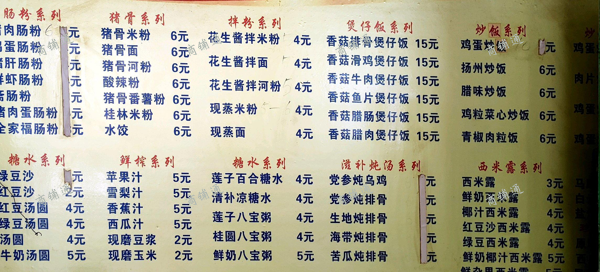 肠粉系列
猪肉肠粉 元
鸡蛋肠粉 元
猪肝肠粉 元
鲜虾肠粉 元
肠粉 元
猪肉蛋肠粉 元
全家福肠粉 元
猪骨系列
猪骨米粉 6元
猪骨面 6元
猪骨河粉 6元
酸辣粉 6元
猪骨番薯粉 6元
桂林米粉 6元
水饺 6元
拌粉系列
花生酱拌米粉 4元
花生酱拌面 4元
花生酱拌河粉 4元
现蒸米粉 4元
现蒸面 4元
煲仔饭系列
香菇排骨煲仔饭 15元
香菇滑鸡煲仔饭 15元
香菇牛肉煲仔饭 15元
香菇鱼片煲仔饭 15元
香菇腊肠煲仔饭 15元
香菇腊肉煲仔饭 15元
炒饭系列
鸡蛋炒 元
扬州炒饭 6元
腊味炒饭 6元
鸡粒菜心炒饭 6元
青椒肉粒饭 6元
糖水系列
绿豆沙 元
红豆沙 4元
红豆汤圆 4元
绿豆汤圆 4元
汤圆 4元
牛奶汤圆 5元
鲜榨系列
苹果汁 5元
雪梨汁 5元
香蕉汁 5元
西瓜汁 5元
现磨豆浆 2元
现磨玉米 2元
糖水系列
莲子百合糖水 4元
清补凉糖水 4元
莲子八宝粥 4元
桂圆八宝粥 4元
鲜奶八宝粥 5元
滋补炖汤系列
党参炖乌鸡 元
党参炖排骨 元
生地炖排骨 元
海带炖排骨 元
苦瓜炖排骨 元
西米露系列
西米露 3元
鲜奶西米露 4元
椰汁西米露 4元
红豆西米露 4元
绿豆西米露 4元
鲜奶椰汁西米露 5元
鲜杂果西米露 5元